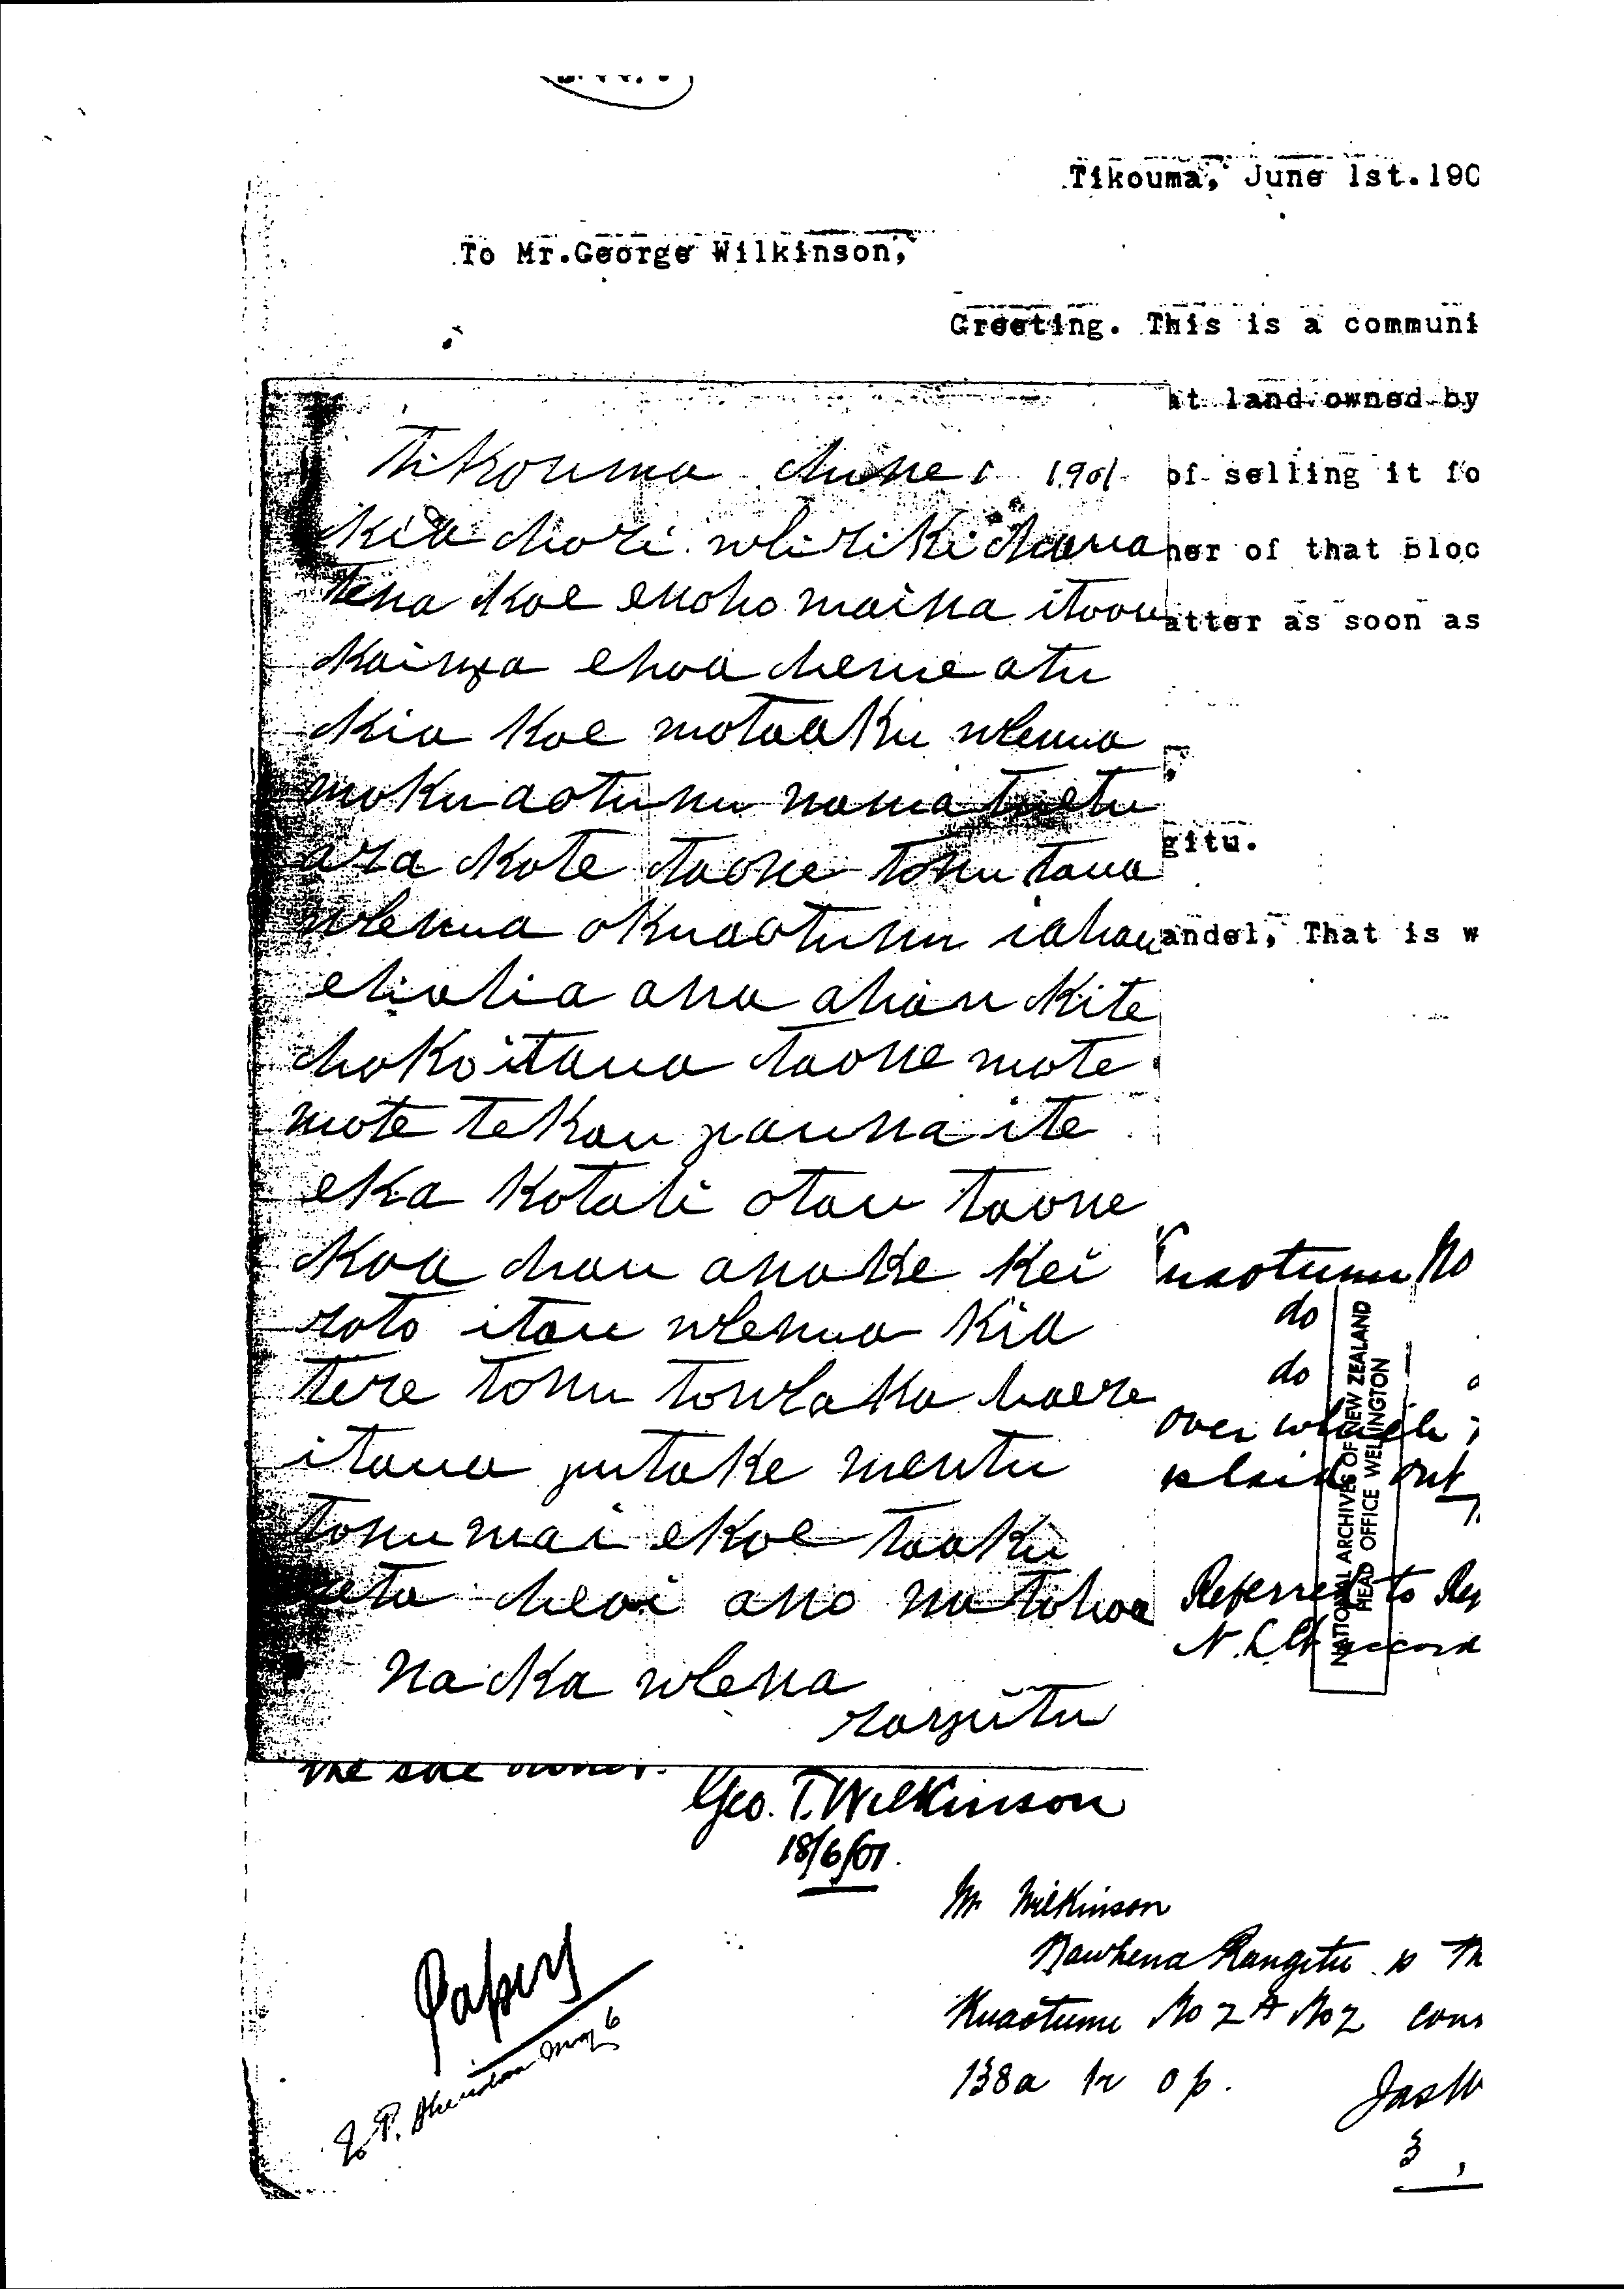 Tikouma, June 1st.190
To Mr.George Wilkinson,
Greeting. This is a communi
at land owned by
of selling it fo
ner of that Bloc
atter as soon as
gitu.
andel, That is w
Tikouma hune 1 1901
Kia hori wirikihana
tena koe enoho maina itoou
kainga ehoa heme atu
kia koe motaaku whenua
mokuaotunu
ara kote taone tonu taua
whenua okuaotunu iahau
ehiahia ana ahau kite
hoko itaua taone mote
mote tekau pauna ite
eka kotahi otau taone
koa hau anake kei
roto itau whenua kia
tere tonu towhaka haere
itaua putake me utu
tonu mai ekoe taaku
reta heoi ano na tohoa
na ka whena
rangitu
uaotunu No
do
do
over which
is laid out
Referred to Reg
N.L.Ct accord
NATIONAL ARCHIVES OF NEW ZEALAND
HEAD OFFICE WELLINGTON
the sole owner.
Geo. T. Wilkinson
18/6/01.
Mr Wilkinson
Nawhena Rangitu is th
Kuaotunu No 2A No 2 cons
138a 1r 0p.
Jas W
3
Papers
to P. Sheridan May 6